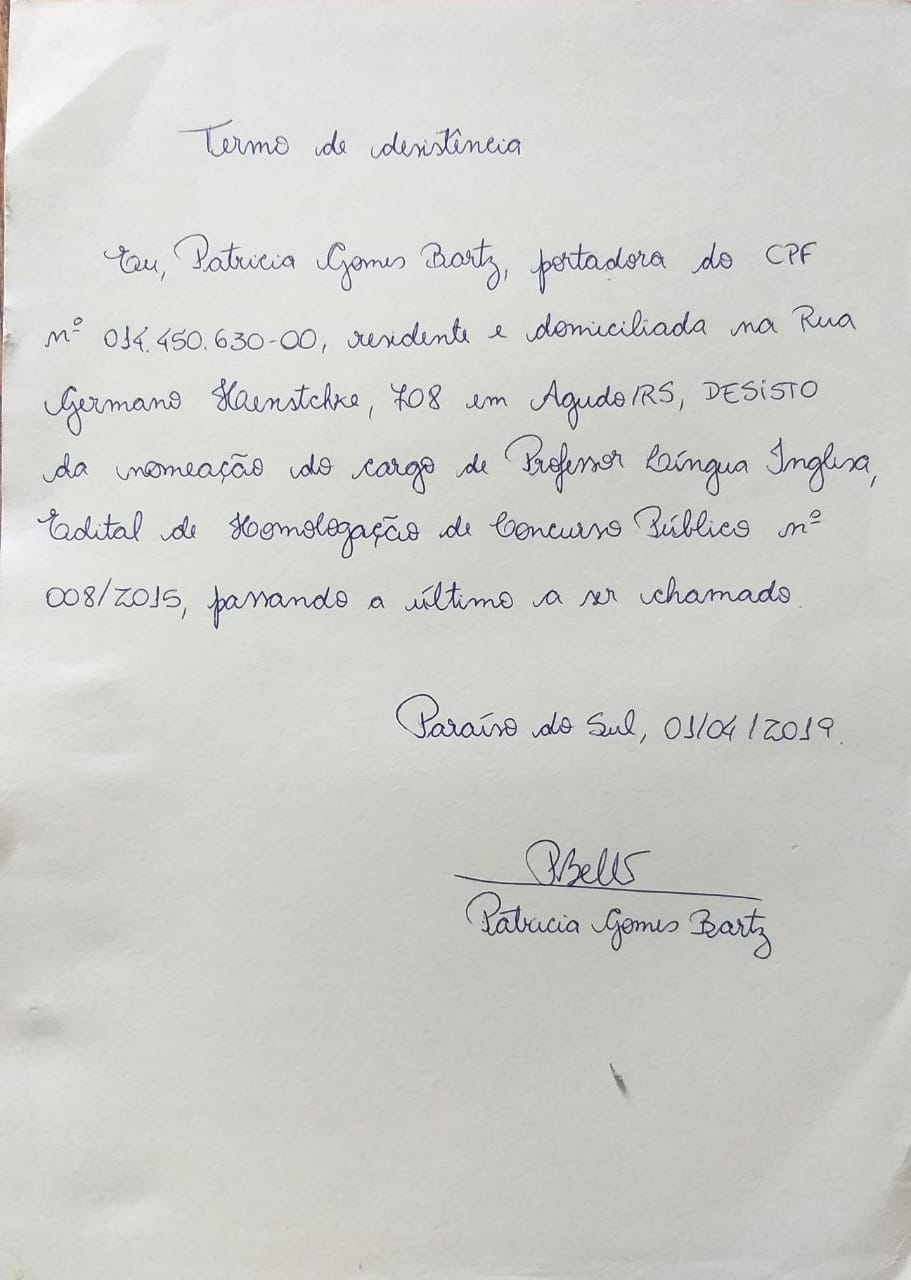 Termo de desistência
Eu, Patricia Gomes Bartz, portadora do CPF
nº 014.450.630-00, residente e domiciliada na Rua
Germano Haenstchke, 708 em Agudo/RS, DESISTO
da nomeação do cargo de Professor Língua Inglesa,
Edital de Homologação de Concurso Público nº
008/2015, passando a último a ser chamado.
Paraíso do Sul, 01/04/2019.
Patricia Gomes Bartz